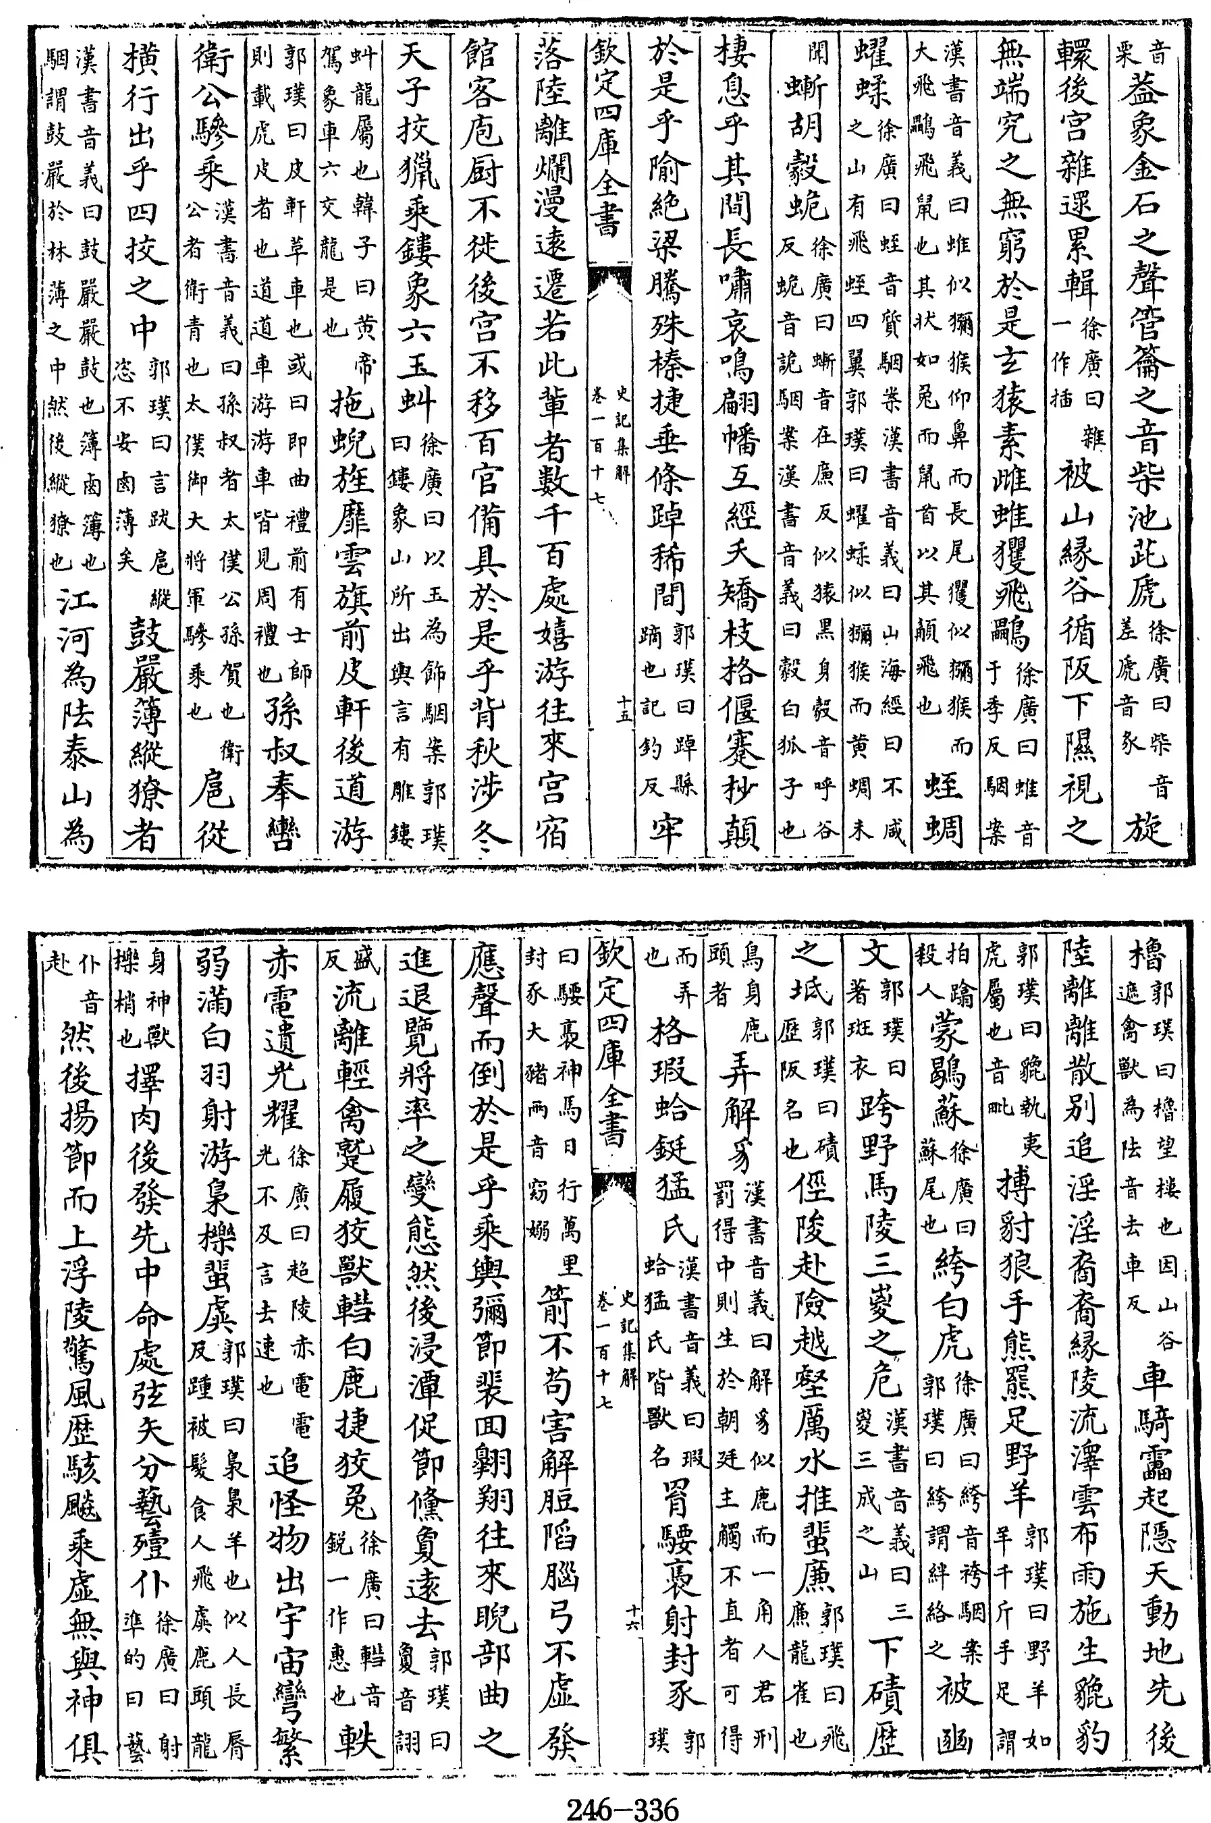 音栗蓋象金石之聲管籥之音柴池茈虒徐廣曰柴音差虒音豸旋
轘後宮雜遝累輯徐廣曰雜一作插被山縁谷循阪下隰視之
無端究之無窮於是玄猿素雌蜼玃飛鸓徐廣曰蜼音于季反駰案
漢書音義曰蜼似獼猴仰鼻而長尾玃似獼猴而大飛鸓飛鼠也其狀如兔而鼠首以其䫇飛也蛭蜩
蠗蝚徐廣曰蛭音質駰案漢書音義曰山海經曰不咸之山有飛蛭四翼郭璞曰蠗蝚似獼猴而黄蜩未
聞蜥胡豰蛫徐廣曰蜥音在廉反似猿黑身豰音呼谷反蛫音詭駰案漢書音義曰豰白狐子也
棲息乎其間長嘯哀鳴翩幡互經夭矯枝格偃蹇杪顛
於是乎隃絶梁騰殊榛捷垂條踔稀間郭璞曰踔縣蹢也記釣反牢
欽定四庫全書 史記集解卷一百十七 十五
落陸離爛漫遠遷若此輩者數千百處嬉游往來宮宿
館客庖厨不徙後宮不移百官備具於是乎背秋涉冬
天子挍獵乘鏤象六玉虯徐廣曰以玉為飾駰案郭璞曰鏤象山所出輿言有雕鏤
虯龍屬也韓子曰黄帝駕象車六交龍是也拖蜺旌靡雲旗前皮軒後道游
郭璞曰皮軒草車也或曰即曲禮前有士師則載虎皮者也道道車游游車皆見周禮也孫叔奉轡
衛公驂乘漢書音義曰孫叔者太僕公孫賀也衛公者衛青也太僕御大將軍驂乘也扈從
横行出乎四挍之中郭璞曰言跋扈縱恣不安鹵薄矣鼓嚴薄縱獠者
漢書音義曰鼓嚴嚴鼓也薄鹵薄也駰謂鼓嚴於林薄之中然後縱獠也江河為阹泰山為
櫓郭璞曰櫓望樓也因山谷遮禽獸為阹音去車反車騎靁起隠天動地先後
陸離離散别追淫淫裔裔縁陵流澤雲布雨施生貔豹
郭璞曰貔執夷虎屬也音毗搏豺狼手熊羆足野羊郭璞曰野羊如羊千斤手足謂
拍蹹殺人蒙鶡蘇徐廣曰蘇尾也絝白虎徐廣曰絝音袴駰案郭璞曰絝謂絆絡之被豳
文郭璞曰著班衣跨野馬陵三嵏之危漢書音義曰三嵏三成之山下磧歷
之坻郭璞曰磧歷阪名也俓陖赴險越壑厲水推蜚廉郭璞曰飛廉龍雀也
鳥身鹿頭者弄解豸漢書音義曰解豸似鹿而一角人君刑罰得中則生於朝廷主觸不直者可得
而弄也格瑕蛤鋌猛氏漢書音義曰瑕蛤猛氏皆獸名罥騕褭射封豕郭璞
欽定四庫全書 史記集解卷一百十七 十六
曰騕褭神馬日行萬里封豕大豬兩音窈嫋箭不茍害解脰陷腦弓不虛發
應聲而倒於是乎乘輿彌節裴回翱翔往來睨部曲之
進退覽將率之變態然後浸潭促節儵夐遠去郭璞曰夐音詡
盛反流離輕禽蹵履狡獸轊白鹿捷狡兔徐廣曰轊音鋭一作惠也軼
赤電遺光耀徐廣曰超陵赤電電光不及言去速也追怪物出宇宙彎繁
弱滿白羽射游梟櫟蜚虡郭璞曰梟梟羊也似人長脣反踵被髮食人飛虡鹿頭龍
身神獸櫟梢也擇肉後發先中命處弦矢分藝殪仆徐廣曰射凖的曰藝
仆音赴然後揚節而上浮陵驚風歷駭飈乘虛無與神俱
246-336